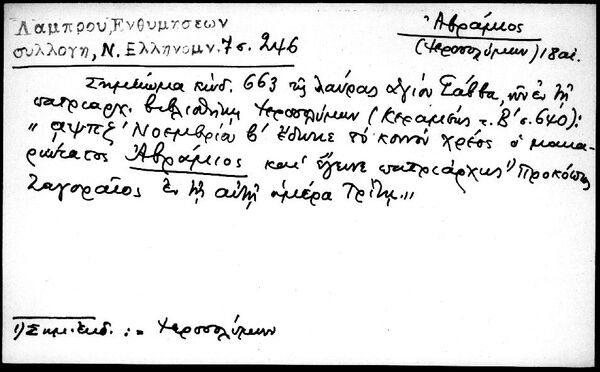 Λαμπρου, Ενθυμησεων
συλλογη, Ν. Ελληνομν. 7 σ. 246
Ἀβράμιος
(Ἱεροσολύμων) 18 αἰ.
Σημείωμα κώδ. 663 τῆς λαύρας ἁγίου Σάββα, νῦν ἐν τῇ
πατριαρχ. βιβλιοθήκῃ Ἱεροσολύμων (Κεραμεὺς τ. Β' σ. 640):
"αψπζ' Νοεμβρίου β' ἔδωκε τὸ κοινὸν χρέος ὁ μακα-
ριώτατος Ἀβράμιος καὶ ἔγεινε πατριάρχης 1) Προκόπιος
Ζαγοραῖος ἐν τῇ αὐτῇ ἡμέρᾳ Τρίτῃ."
1) Σημ. ἐκδ. : = Ἱεροσολύμων